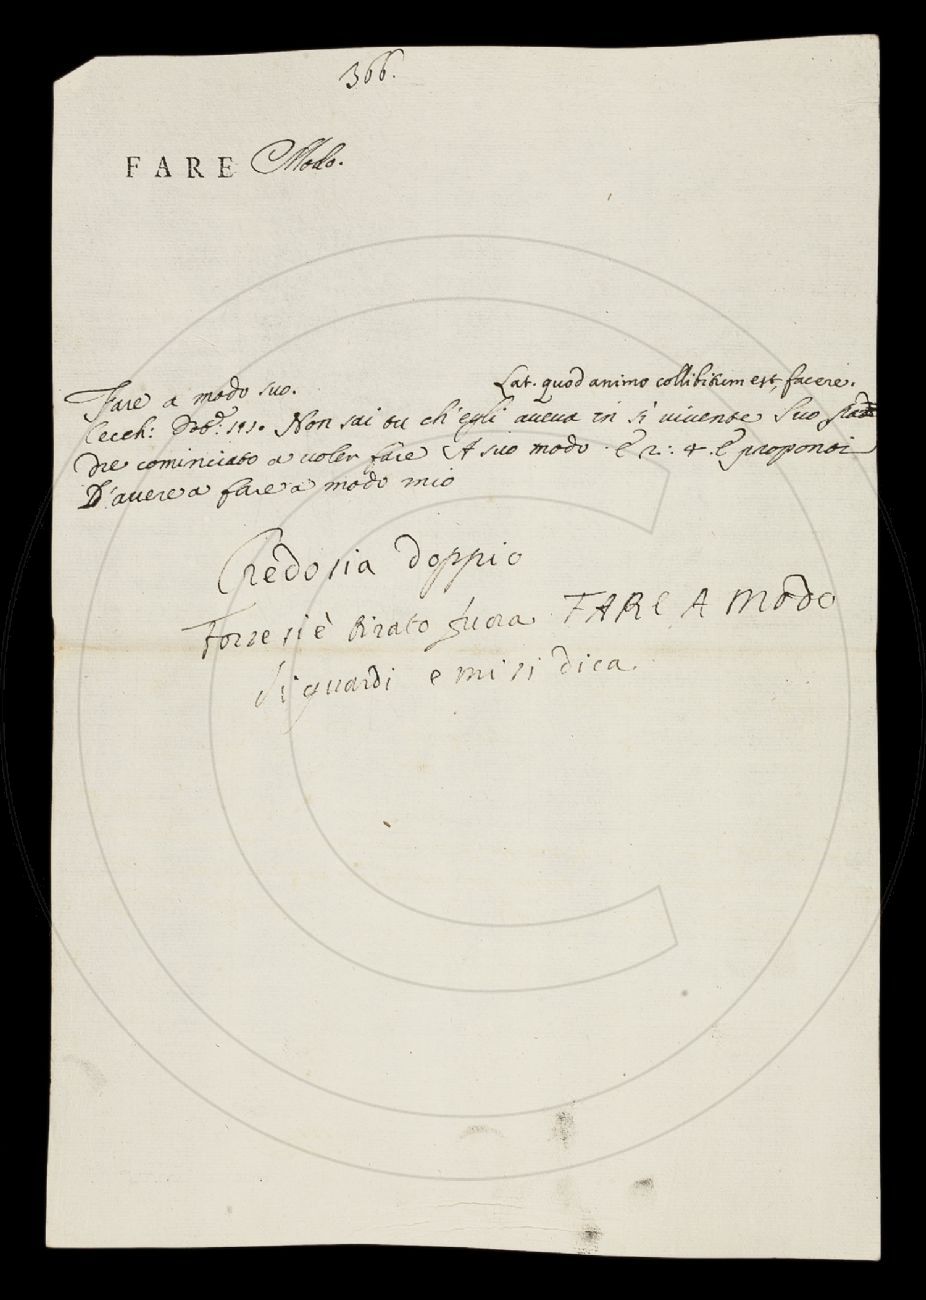 366.
FARE Modo.
Fare a modo suo. Lat. quod animo collibitum est, facere.
Cecch: Dot: 1.1. Non sai tu ch'egli aveva in sì vivente suo pad
dre cominciato a voler fare A suo modo. E 2: 4. E proponti
D'avere a fare a modo mio
Credo sia doppio
Forse si è tirato fuora FARE A MODO
Si guardi e mi si dica.